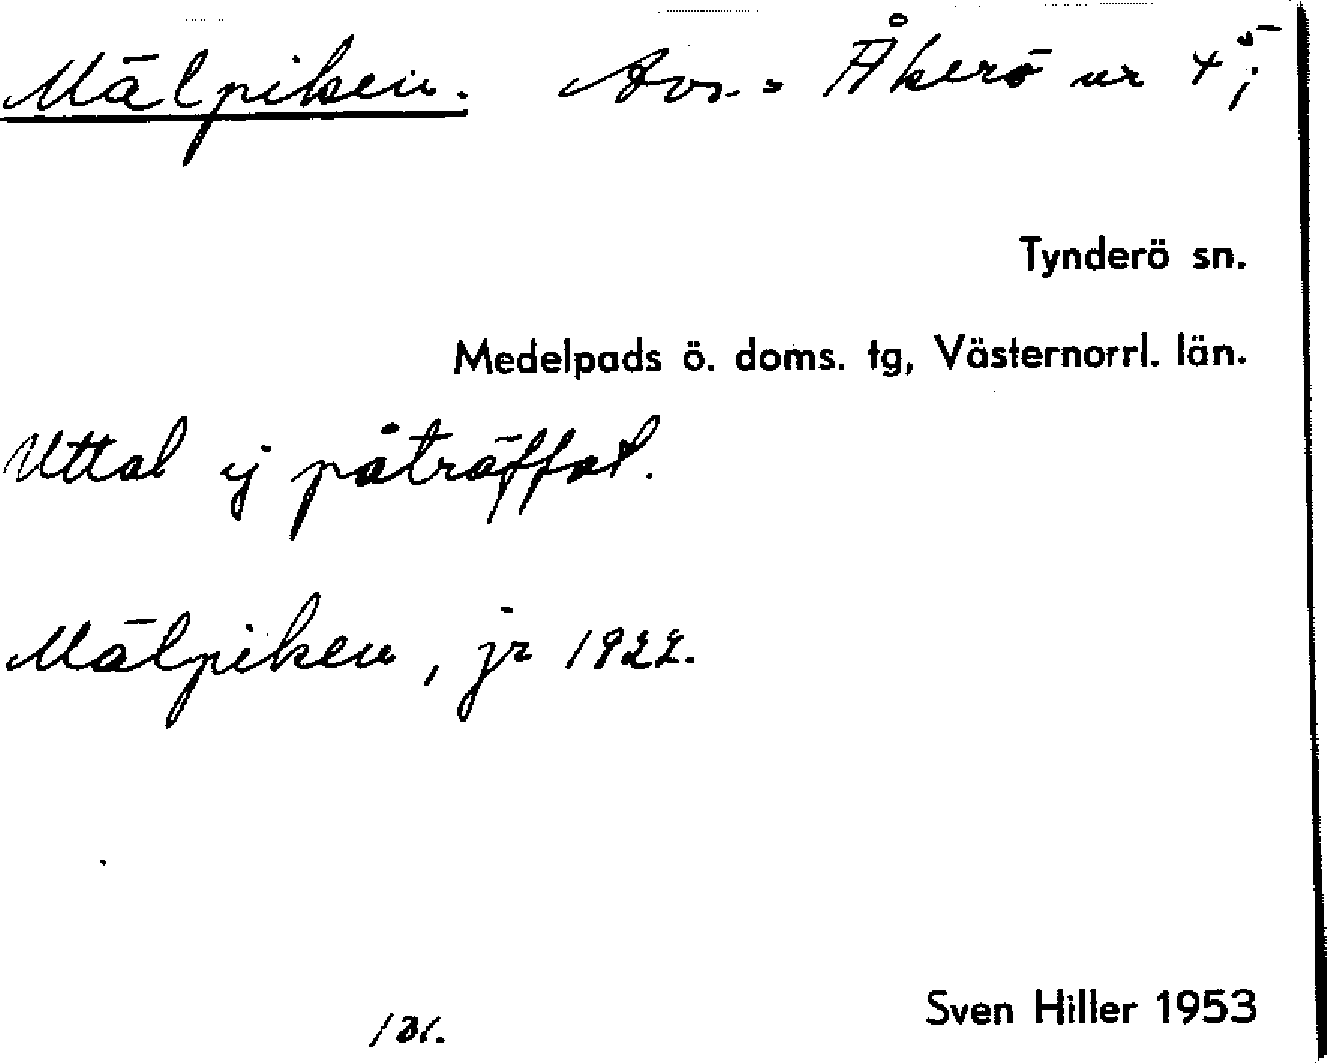 Mälpiken. Avs. = Åkerö nr 4;
Tynderö sn.
Medelpads ö. doms. tg, Västernorrl. län.
Uttal ej påträffat.
Mälpiken, jr 1922.
Sven Hiller 1953